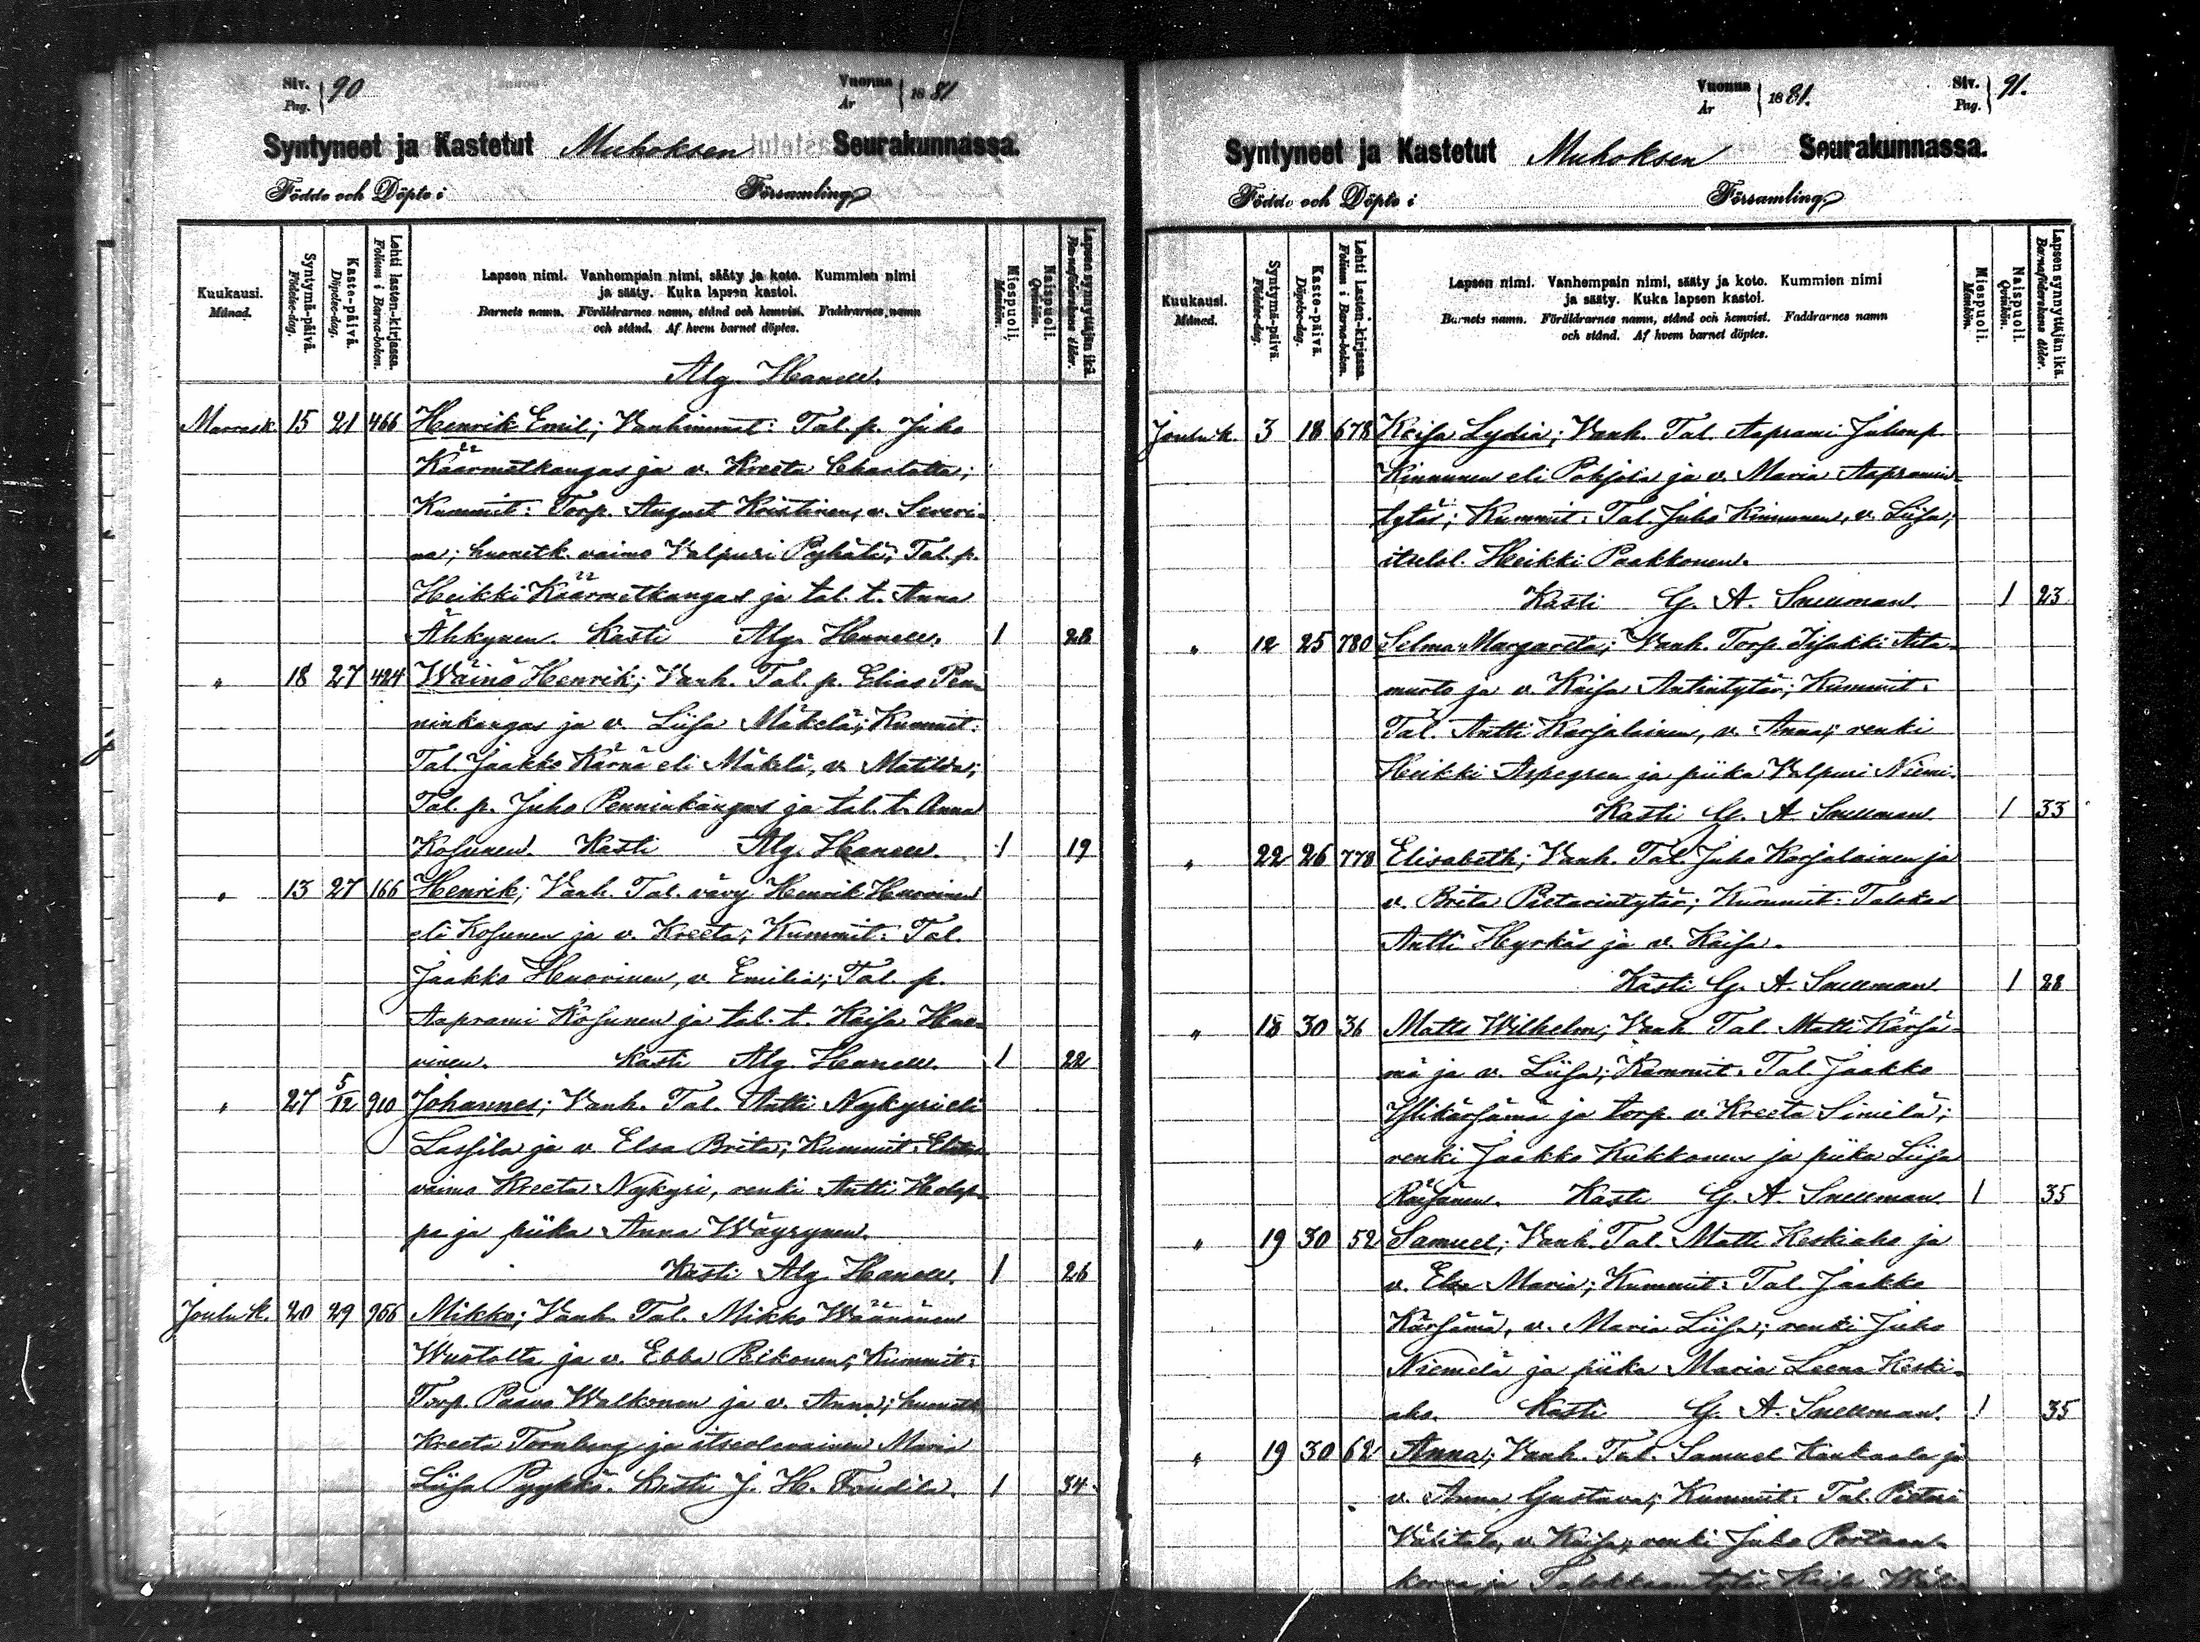 Siv. 90 Vuonna 1881
Pag. År
Syntyneet ja Kastetut Muhoksen Seurakunnassa.
Födde och Döpte i Församling
Kuukausi.
Månad.
Syntymä-päivä.
Födelse-dag.
Kaste-päivä.
Döpelse-dag.
Lehti lasten-kirjassa.
Folium i Barna-boken.
Lapsen nimi. Vanhempain nimi, sääty ja koto. Kummien nimi
ja sääty. Kuka lapsen kastoi.
Barnets namn. Föräldrarnes namn, stånd och hemvist. Faddrarnes namn
och stånd. Af hvem barnet döptes.
Miespuoli.
Mankön.
Naispuoli.
Qvinkön.
Lapsen synnyttäjän ikä.
Barnaföderskans ålder.
Alg. Hanell.
Marrask. 15 21 466 Henrik Emil; Vanhimmat: Tal. p. Juho
Käärmetkangas ja v. Kreeta Charlotta;
Kummit: Torp. August Kristinen, v. Severi-
na; huonetk. vaimo Valpuri Pyhälä; Tal. p.
Heikki Käärmetkangas ja tal. t. Anna
Ähkynen. Kasti Alg. Hanell. 1 28
" 18 27 424 Wäinö Henrik; Vanh. Tal. p. Elias Pen-
ninkangas ja v. Liisa Mäkelä; Kummit:
Tal. Jaakko Kärnä eli Mäkelä, v. Matilda;
Tal. p. Juho Penninkangas ja tal. t. Anna
Kosunen. Kasti Alg. Hanell. 1 19
" 13 27 166 Henrik; Vanh. Tal. vävy Henrik Huovinen
eli Kosunen ja v. Kreeta; Kummit: Tal.
Jaakko Huovinen, v. Emilia; Tal. p.
Aaprami Kosunen ja tal. t. Kaisa Huo-
vinen. Kasti Alg. Hanell. 1 22
" 27 5/12 910 Johannes; Vanh. Tal. Antti Nykyri eli
Lassila ja v. Elsa Brita; Kummit:
vaimo Kreeta Nykyri, renki Antti Holap-
pa ja piika Anna Wäyrynen.
Kasti Alg. Hanell. 1 26
Jouluk. 20 29 966 Mikko; Vanh. Tal. Mikko Wäänänen
ja v. Ebba Reikonen; Kummit:
Torp. Paavo Walkonen ja v. Anna; huonetk.
Kreeta Tornberg ja itseolevainen Maria
Liisa Pyykkö. Kasti J. H. 1 34
Vuonna 1881. Siv. 91.
År Pag.
Syntyneet ja Kastetut Muhoksen Seurakunnassa.
Födde och Döpte i Församling
Kuukausi.
Månad.
Syntymä-päivä.
Födelse-dag.
Kaste-päivä.
Döpelse-dag.
Lehti Lasten-kirjassa.
Folium i Barna-boken.
Lapsen nimi. Vanhempain nimi, sääty ja koto. Kummien nimi
ja sääty. Kuka lapsen kastoi.
Barnets namn. Föräldrarnes namn, stånd och hemvist. Faddrarnes namn
och stånd. Af hvem barnet döptes.
Miespuoli.
Mankön.
Naispuoli.
Qvinkön.
Lapsen synnyttäjän ikä.
Barnaföderskans ålder.
Jouluk. 3 18 678 Kaisa Lydia; Vanh. Tal. Aaprami Juhonp.
Kinnunen eli Pohjola ja v. Maria Aapramin-
tytär; Kummit: Tal. Juho Kinnunen, v. Liisa;
itsell. Heikki Paakkonen.
Kasti G. A. Snellman. 1 23
" 12 25 780 Selma Margareta; Vanh. Torp. Iisakki Aita-
murto ja v. Kaisa Antintytär; Kummit:
Tal. Antti Karjalainen, v. Anna; renki
Heikki Aspegren ja piika Valpuri Niemi.
Kasti G. A. Snellman. 1 33
" 22 26 778 Elisabeth; Vanh. Tal. Juho Karjalainen ja
v. Brita Pietarintytär; Kummit: Talokas
Antti Hyrkäs ja v. Kaisa.
Kasti G. A. Snellman. 1 28
" 18 30 36 Matts Wilhelm; Vanh. Tal. Matti Kärsä-
mä ja v. Liisa; Kummit: Tal. Jaakko
Ylikärsämä ja torp. v. Kreeta Similä;
renki Jaakko Kukkonen ja piika Liisa
Räisänen. Kasti G. A. Snellman. 1 35
" 19 30 52 Samuel; Vanh. Tal. Matti Keskiaho ja
v. Elsa Maria; Kummit: Tal. Jaakko
Kärsämä, v. Maria Liisa; renki Juho
Niemelä ja piika Maria Leena Keski-
aho. Kasti G. A. Snellman. 1 35
" 19 30 62 Anna; Vanh. Tal. Samuel Kaukaala ja
v. Anna Gustava; Kummit: Tal. Pietari
Välitalo, v. Kaisa; renki Juho Portaan-
korva ja Talokkaan tytär Kaisa